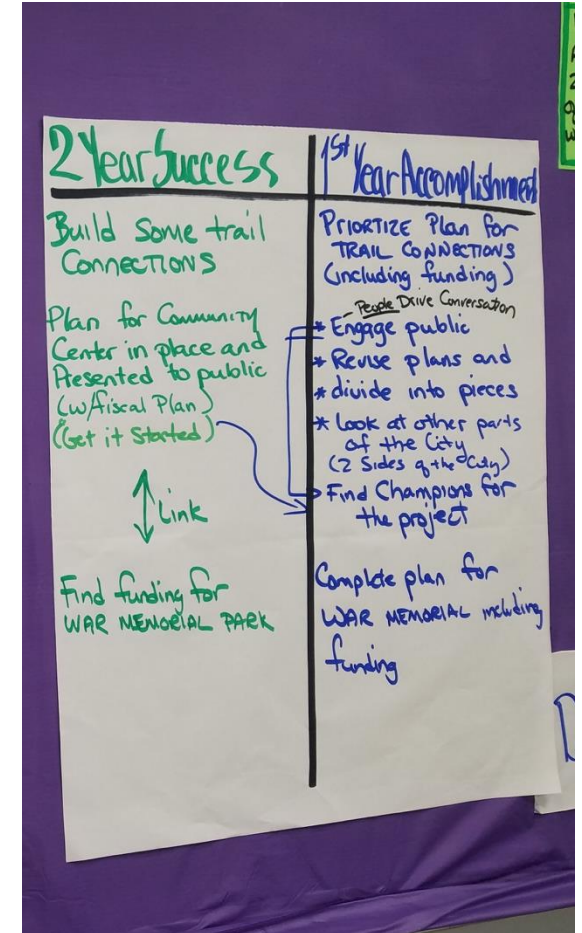 2 Year Success
Build Some trail
CONNECTIONS
Plan for Community
Center in place and
Presented to public
(w/fiscal Plan)
(Get it Started)
Link
Find funding for
WAR MEMORIAL PARK
1st Year Accomplishment
PRIORTIZE Plan for
TRAIL CONNECTIONS
(including funding)
- People Drive Conversation
* Engage public
* Revise plans and
* divide into pieces
* Look at other parts
of the City
(2 Sides of the City)
Find Champions for
the project
Complete plan for
WAR MEMORIAL including
funding